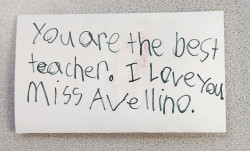 You are the best
teacher. I Love You
Miss Avellino.